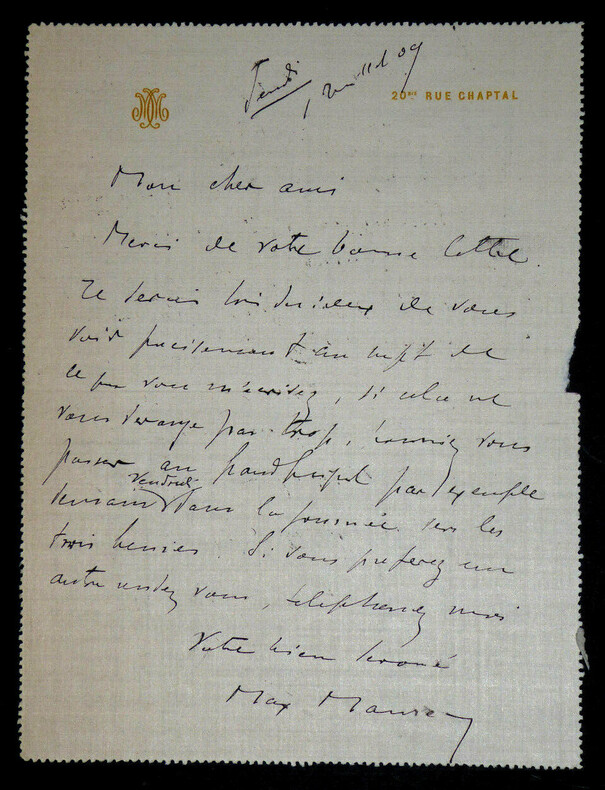 Jeudi
1 Juillet 09
20BIS RUE CHAPTAL
Mon cher ami
Merci de votre bonne lettre.
Je serais très désireux de vous
voir précisément au sujet de
ce que vous m'écrivez, si cela ne
vous dérange pas trop, pourriez vous
passer au grand guignol par exemple
demain Vendredi dans la journée vers les
trois heures. Si vous préférez un
autre rendez vous, téléphonez moi
Votre bien dévoué
Max Maurey